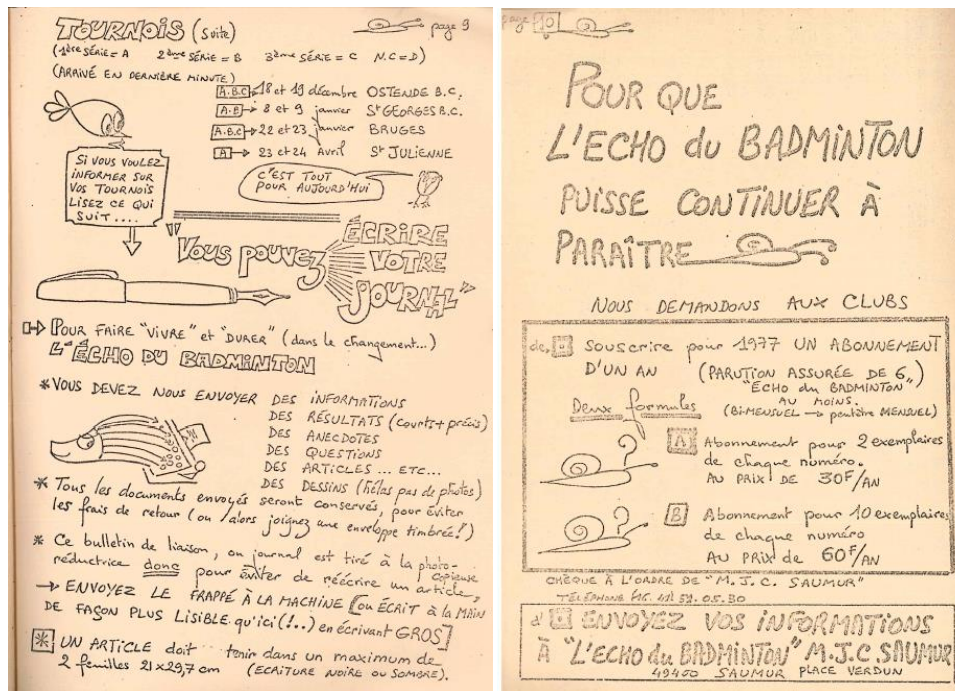 TOURNOIS (suite)
page 9
(1ère SÉRIE = A 2ème SÉRIE = B 3ème SÉRIE = C N.C = D)
(ARRIVÉ EN DERNIÈRE MINUTE)
A.B.C → 18 et 19 décembre OSTENDE B.C.
A.B → 8 et 9 janvier St GEORGES B.C.
A.B.C → 22 et 23 janvier BRUGES
A → 23 et 24 Avril St JULIENNE
SI VOUS VOULEZ
INFORMER SUR
VOS TOURNOIS
LISEZ CE QUI
SUIT....
C'EST TOUT
POUR AUJOURD'HUI
"VOUS POUVEZ
ÉCRIRE
VOTRE
JOURNAL"
POUR FAIRE "VIVRE" et "DURER" (dans le changement...)
L'ÉCHO DU BADMINTON
* VOUS DEVEZ NOUS ENVOYER DES INFORMATIONS
DES RÉSULTATS (courts + précis)
DES ANECDOTES
DES QUESTIONS
DES ARTICLES ... ETC...
DES DESSINS (hélas pas de photos)
* Tous les documents envoyés seront conservés, pour éviter
les frais de retour (ou alors joignez une enveloppe timbrée!)
* Ce bulletin de liaison, ou journal est tiré à la photo-
copieuse
réductrice donc pour éviter de réécrire un article,
→ ENVOYEZ LE FRAPPÉ À LA MACHINE [ou ÉCRIT à la MAIN
DE FAÇON PLUS LISIBLE qu'ici (!..) en écrivant GROS]
* UN ARTICLE doit tenir dans un maximum de
2 feuilles 21x29,7 cm (ECRITURE NOIRE OU SOMBRE).
page 10
POUR QUE
L'ECHO du BADMINTON
PUISSE CONTINUER À
PARAÎTRE
NOUS DEMANDONS AUX CLUBS
de, souscrire pour 1977 UN ABONNEMENT
D'UN AN (PARUTION ASSURÉE DE 6,
"ECHO du BADMINTON"
AU MOINS.
Deux formules
(BI-MENSUEL → peut être MENSUEL)
A Abonnement pour 2 exemplaires
de chaque numéro.
AU PRIX DE 30F/AN
B Abonnement pour 10 exemplaires
de chaque numéro
AU PRIX de 60F/AN
CHÈQUE À L'ORDRE DE "M.J.C. SAUMUR"
TÉLÉPHONE 41 59.05.30
d' ENVOYEZ VOS INFORMATIONS
À "L'ECHO du BADMINTON" M.J.C. SAUMUR
49400 SAUMUR PLACE VERDUN